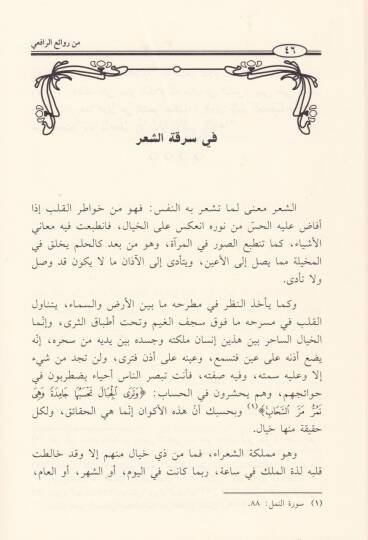 من روائع الرافعي
٤٦
في سرقة الشعر
الشعر معنى لما تشعر به النفس: فهو من خواطر القلب إذا
أفاض عليه الحسّ من نوره انعكس على الخيال، فانطبعت فيه معاني
الأشياء، كما تنطبع الصور في المرآة، وهو من بعد كالحلم يخلق في
المخيلة مما يصل إلى الأعين، ويتأدى إلى الآذان ما لا يكون قد وصل
ولا تأدى.
وكما يأخذ النظر في مطرحه ما بين الأرض والسماء، يتناول
القلب في مسرحه ما فوق سجف الغيم وتحت أطباق الثرى، وإنّما
الخيال الساحر بين هذين إنسان ملكته وجسده بين يديه من سحره، إنّه
يضع أذنه على عين فتسمع، وعينه على أذن فترى، ولن تجد من شيء
إلا وعليه سمته، وفيه صفته، فأنت تبصر الناس أحياء يضطربون في
حوائجهم، وهم يحشرون في الحساب: ﴿وَتَرَى ٱلْجِبَالَ تَحْسَبُهَا جَامِدَةً وَهِىَ
تَمُرُّ مَرَّ ٱلسَّحَابِ﴾(١) وبحسبك أنّ هذه الأكوان إنّما هي الحقائق، ولكل
حقيقة منها خيال.
وهو مملكة الشعراء، فما من ذي خيال منهم إلا وقد خالطت
قلبه لذة الملك في ساعة، ربما كانت في اليوم، أو الشهر، أو العام،
(١) سورة النمل: ٨٨.